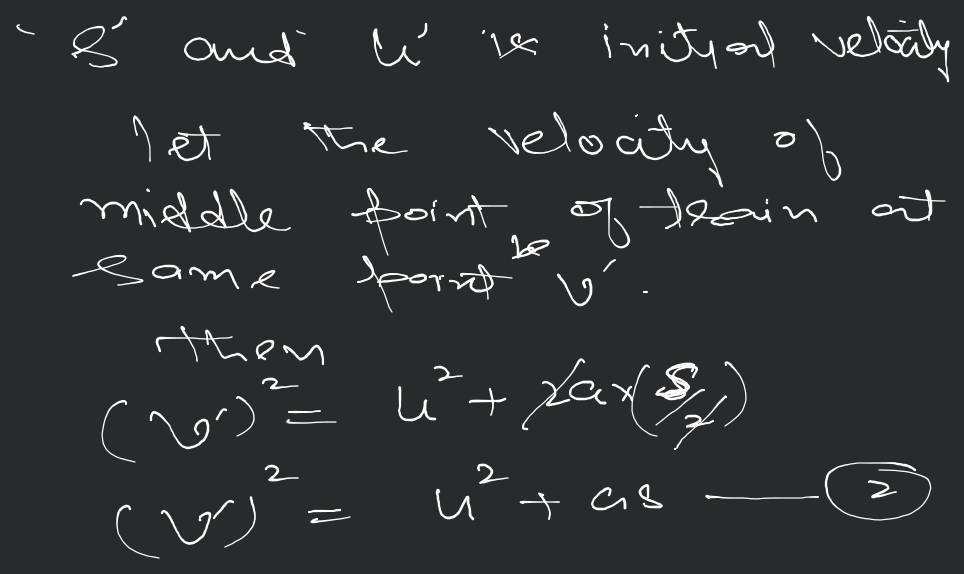 'S' and 'u' is inityal velocity
let the velocity of
middle point of train at
same point be v'.
then
(v')² = u² + 2a×(S/2)
(v')² = u² + as —— 2